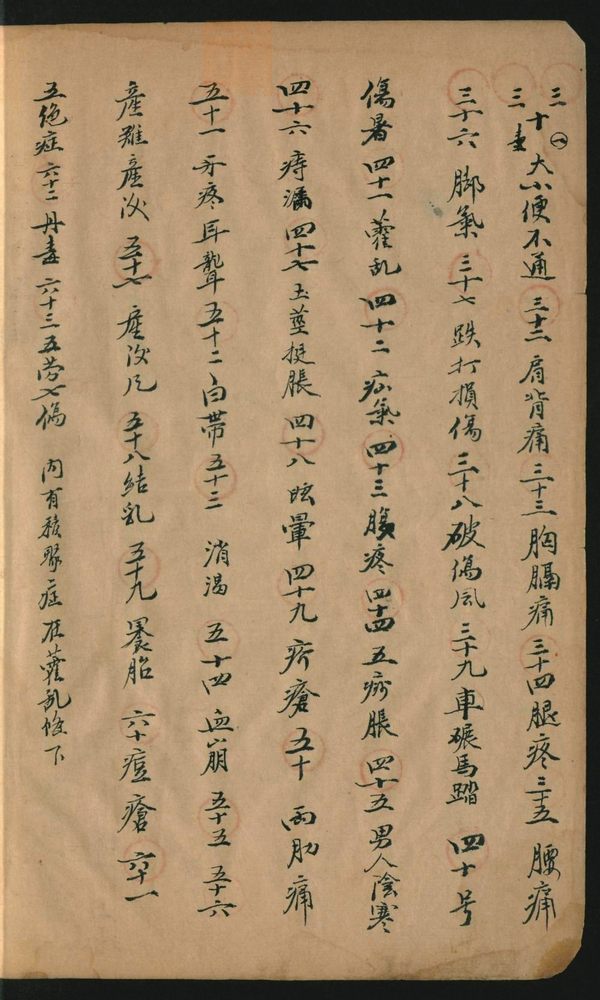 三
三十㊀
大小便不通 三十二 肩背痛 三十三 胸膈痛 三十四 腿疼 三十五 腰痛
三十六 脚氣 三十七 跌打損傷 三十八 破傷風 三十九 車碾馬踏 四十号
傷暑 四十一 藿乱 四十二 疝氣 四十三 腹疼 四十四 五 脹 四十五 男人陰寒
四十六 痔漏 四十七 玉莖挺脹 四十八 眩暈 四十九 疥瘡 五十 兩肋痛
五十一 牙疼耳聾 五十二 白帯 五十三 消渴 五十四 血崩 五十五 五十六
產難產後 五十七 產後 五十八 結乳 五十九 胎 六十 痘瘡 六十一
五绝症 六十二 丹毒 六十三 五劳七傷 内有積聚症在藿亂條下